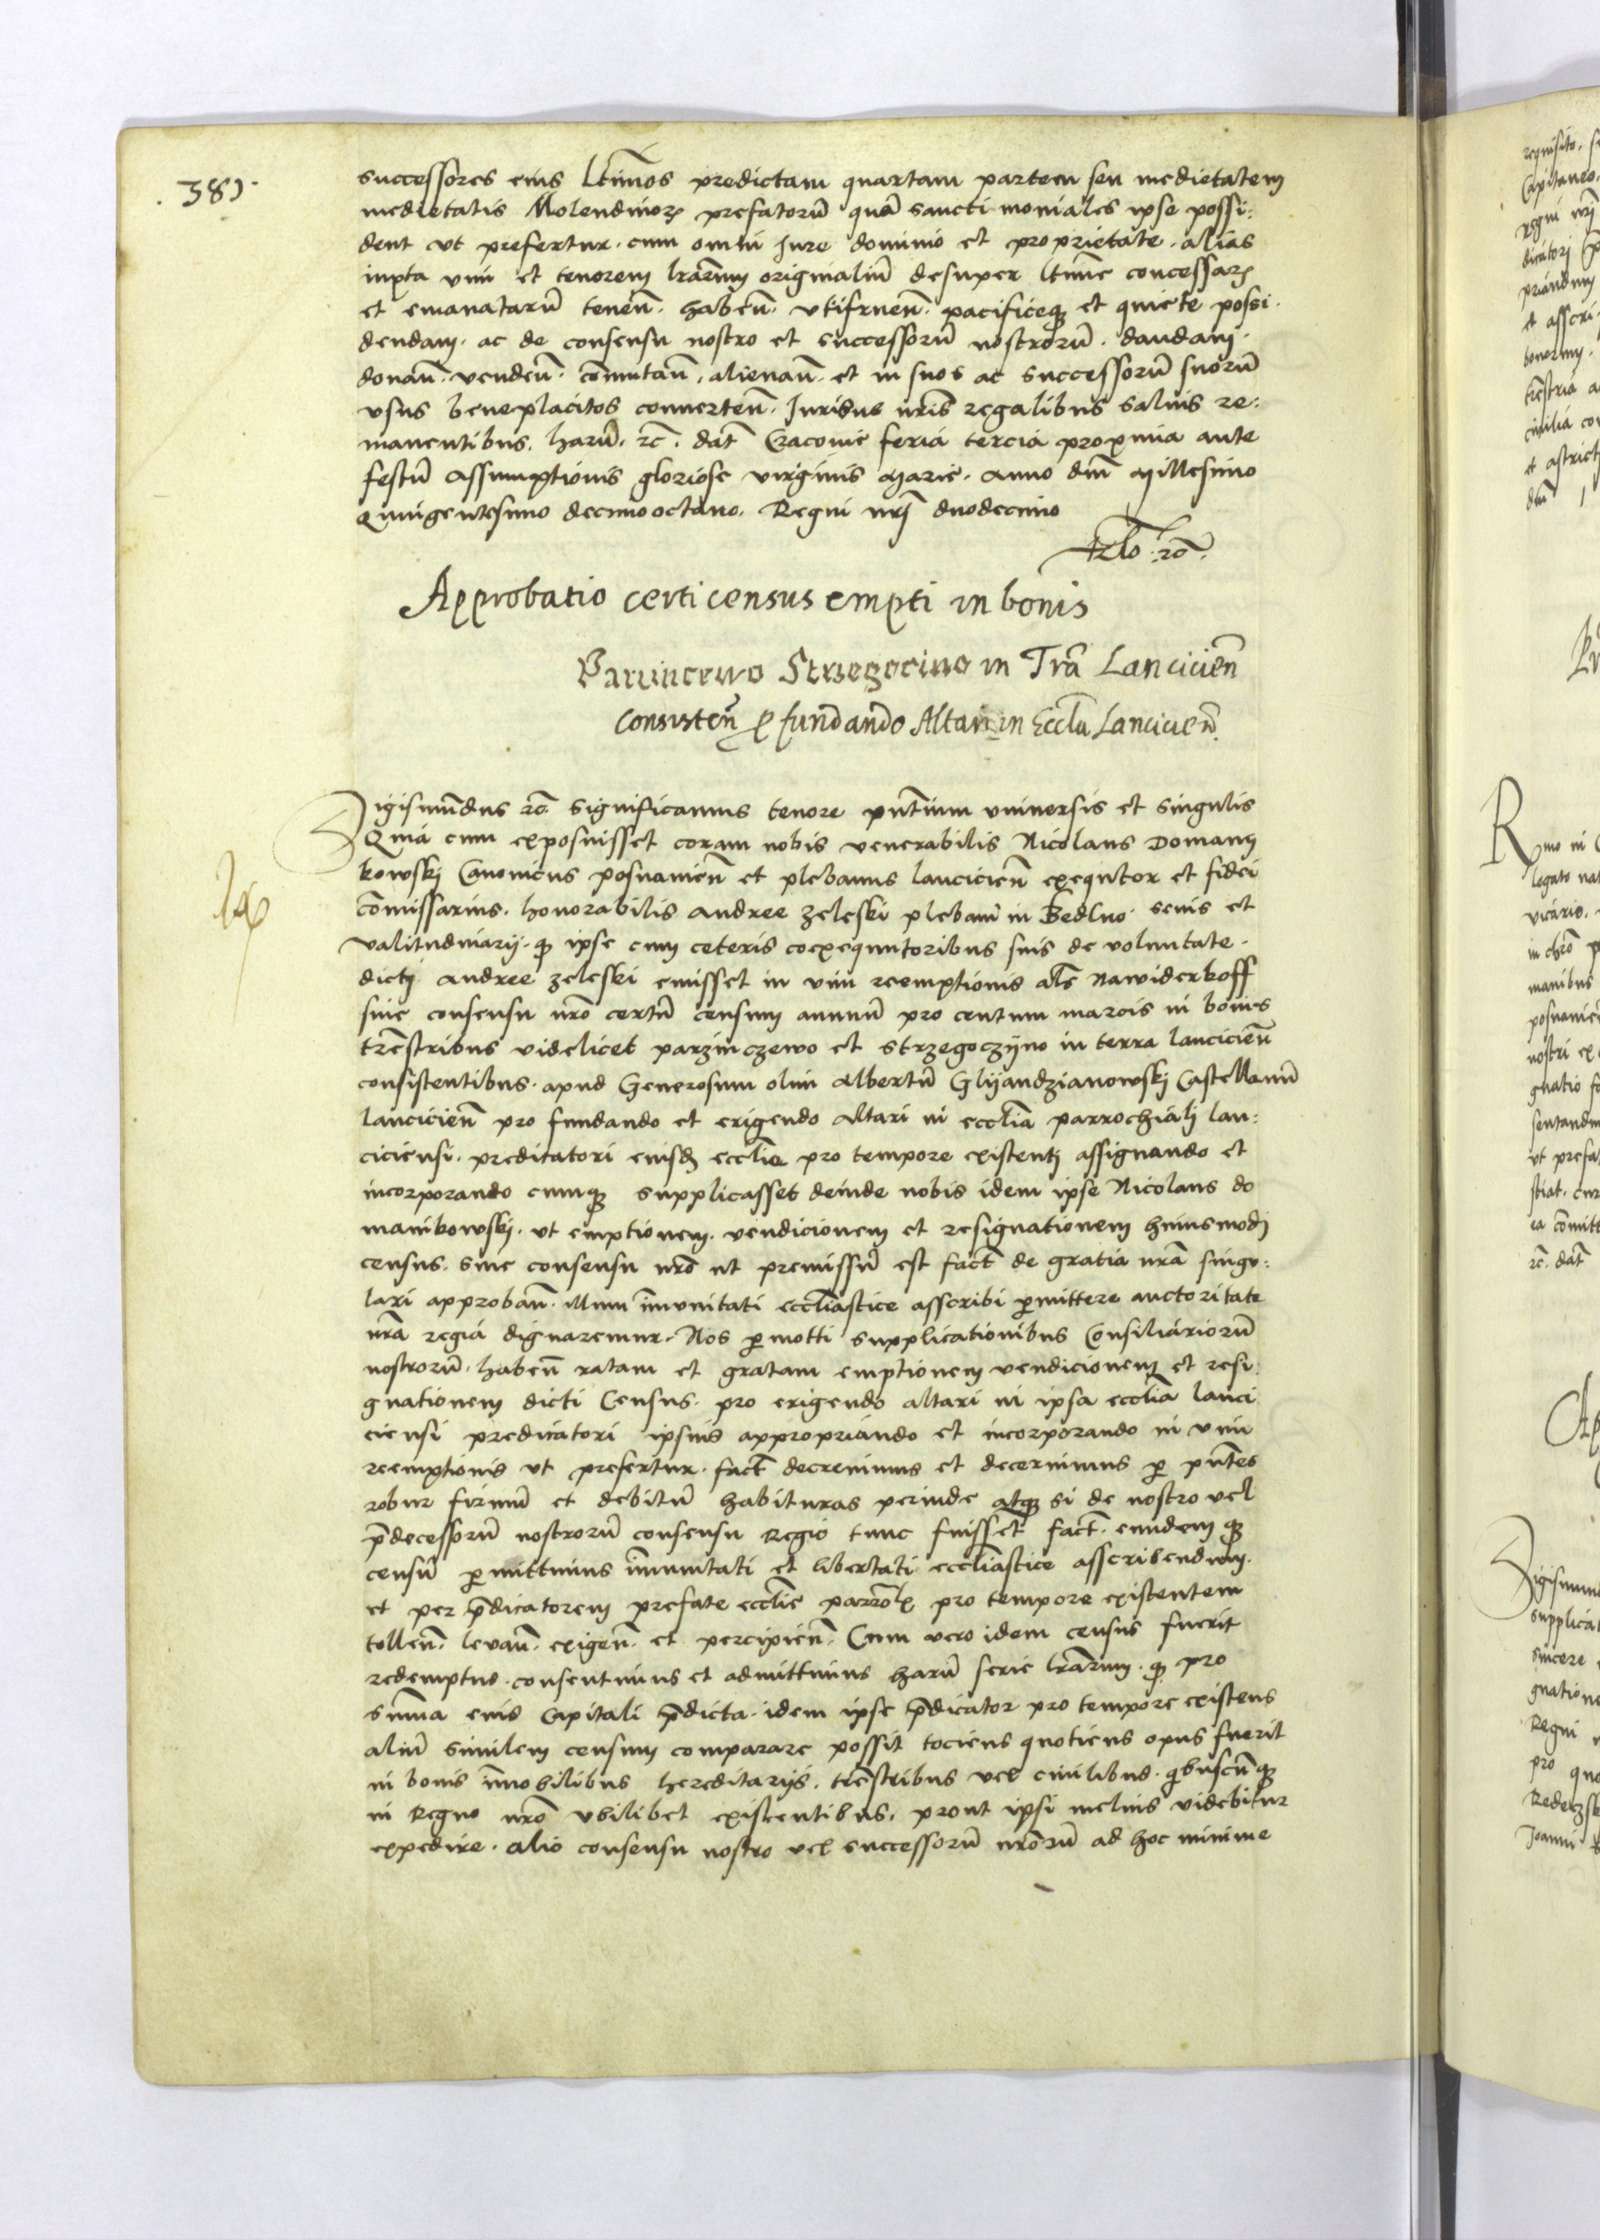 385.
successores eius ltimos predictam quartam partem seu medietatem
medietatis Molendinorz prefatorū quā sanctimoniales ipse possi:
dent vt prefertur. cum omni Jure dominio et proprietate. alias
iuxta vim et tenorem lrarum originaliū desuper ltime concessarz
et emanatarū tenen̄. haben̄. vtifruen̄. pacificeqz et quiete possi.
dendam. ac de consensu nostro et successorū nostrorū. dandam.
donan̄. venden̄. cōmutan̄. alienan̄. et in suos ac successorū suorū
vsus beneplacitos conuerten̄. Juribus nr̄is regalibus saluis re:
manentibus. harū. rc̄. dat̄ Cracouie feria tercia proxima ante
festū Assumptionis gloriose virginis Marie. Anno dn̄i Millesimo
Quingentesimo decimooctauo. Regni nrī duodecimo
Approbatio certi census empti in bonis
Parvincewo Strzegocino in Trā Lancicien̄
Consisten̄ p fundando Altari in Ecclia Lancicien̄
Sigismūndus rc̄ significamus tenore pn̄tium vniuersis et singulis
Quia cum exposuisset coram nobis venerabilis Nicolaus Doman
kowskj Canonicus posnanien̄ et plebanus lancicien̄ exequtor et fidei
cōmissarius. honorabilis Andree Zeleski plebani in Bedlno. senis et
valitudinarij. qz ipse cum ceteris coexequutoribus suis de voluntate.
dictj Andree Zeleski emisset in vim reemptionis al̄s Nawiderkoff
sine consensu nr̄o certū censum annuū pro centum marcis in bonis
tr̄estribus videlicet parzinczewo et Strzegoczyno in terra lancicien̄
consistentibus. apud Generosum olim Albertū Glyandzianowskj Castellanū
lancicien̄ pro fundando et erigendo altari in eccl̄ia parrochialj lan:
ciciensi. predicatori eiusdz ecclie pro tempore existentj assignando et
incorporando cumqz supplicasset deinde nobis idem ipse Nicolaus do
manikowskj. vt emptionem. vendicionem et resignationem huiusmodi
census. sine consensu nr̄o ut premissū est fact̄ de gratia nr̄a singu:
lari approban̄. illum īmunitati eccl̄iastice asscribi p̄mittere auctoritate
nr̄a regia dignaremur. Nos p̄motti supplicationibus Consiliariorū
nostrorū. haben̄ ratam et gratam emptionem vendicionem et resi
gnationem dicti Census. pro erigendo altari in ipsa eccl̄ia lanci
ciensi predicatori ipsius appropriando et incorporando in vim
reemptionis vt prefertur. fact̄ decreuimus et decernimus p̄ pn̄tes
robur firmū et debitū habituras perinde atqz si de nostro vel
p̄decessorū nostrorū consensu Regio tunc fuisset fact̄. eundemqz
censū p̄mittimus īmunitati et libertati eccl̄iastice asscribendum.
et per p̄dicatorem prefate eccl̄ie parrol̄z pro tempore existentem
tollen̄. leuan̄. exigen̄. et percipien̄. Cum vero idem census fuerit
redemptus. consentimus et admittimus harū serie lrarum. qz pro
sum̄a eius Capitali p̄dicta. idem ipse p̄dicator pro tempore existens
aliū similem censum comparare possit tociens quotiens opus fuerit
in bonis īmobilibus hereditarijs. tr̄estribus vel ciuilibus. qbuscūqz
in Regno nr̄o vbilibet existentibus. prout ipsi melius videbitur
expedire. alio consensu nostro vel successorū nr̄orū ad hoc minime